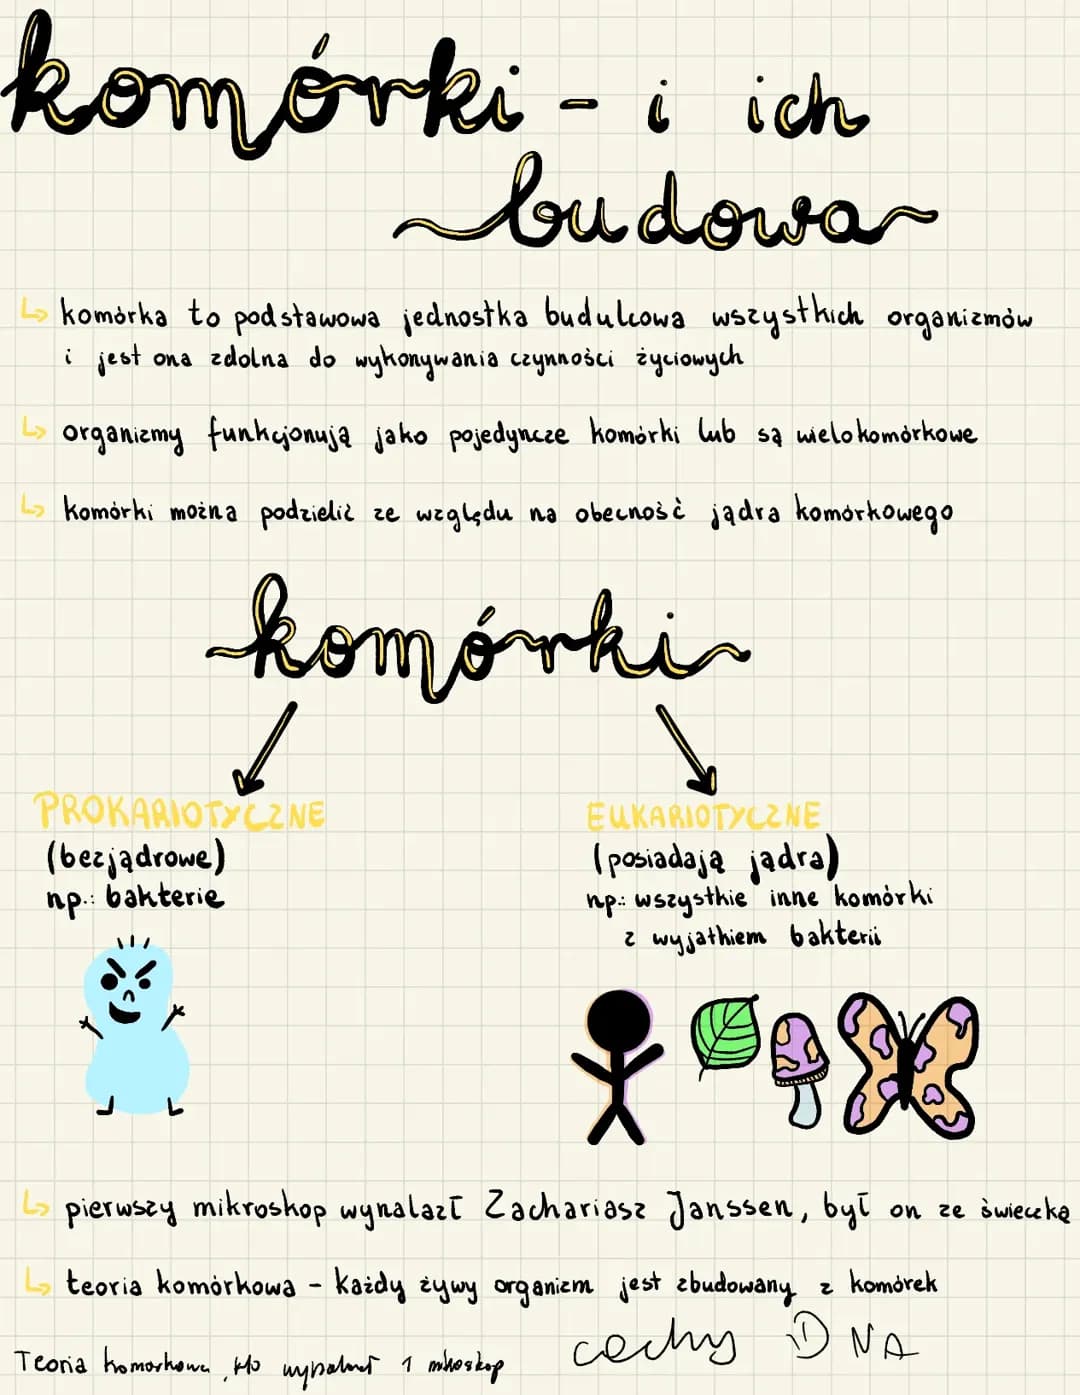 komórki - i ich
budowa
↳ komórka to podstawowa jednostka budulcowa wszystkich organizmów
i jest ona zdolna do wykonywania czynności życiowych
↳ organizmy funkcjonują jako pojedyncze komórki lub są wielokomórkowe
↳ komórki można podzielić ze względu na obecność jądra komórkowego
komórki
PROKARIOTYCZNE
(bezjądrowe)
np.: bakterie
EUKARIOTYCZNE
(posiadają jądra)
np.: wszystkie inne komórki
z wyjątkiem bakterii
↳ pierwszy mikroskop wynalazł Zachariasz Janssen, był on ze świeczką
↳ teoria komórkowa - każdy żywy organizm jest zbudowany z komórek
cechy DNA
Teoria komorkowa, kto 1 mikroskop